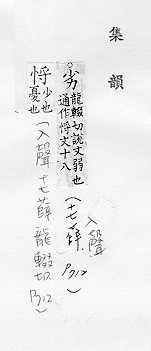 集韻
入聲
。劣龍輟切說文弱也
通作㤠文十八(十七薛 P.712)
㤠少也
憂也(入聲十七薛龍輟切
P.712)